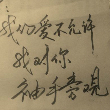 我们爱不允许
我对你
袖手旁观